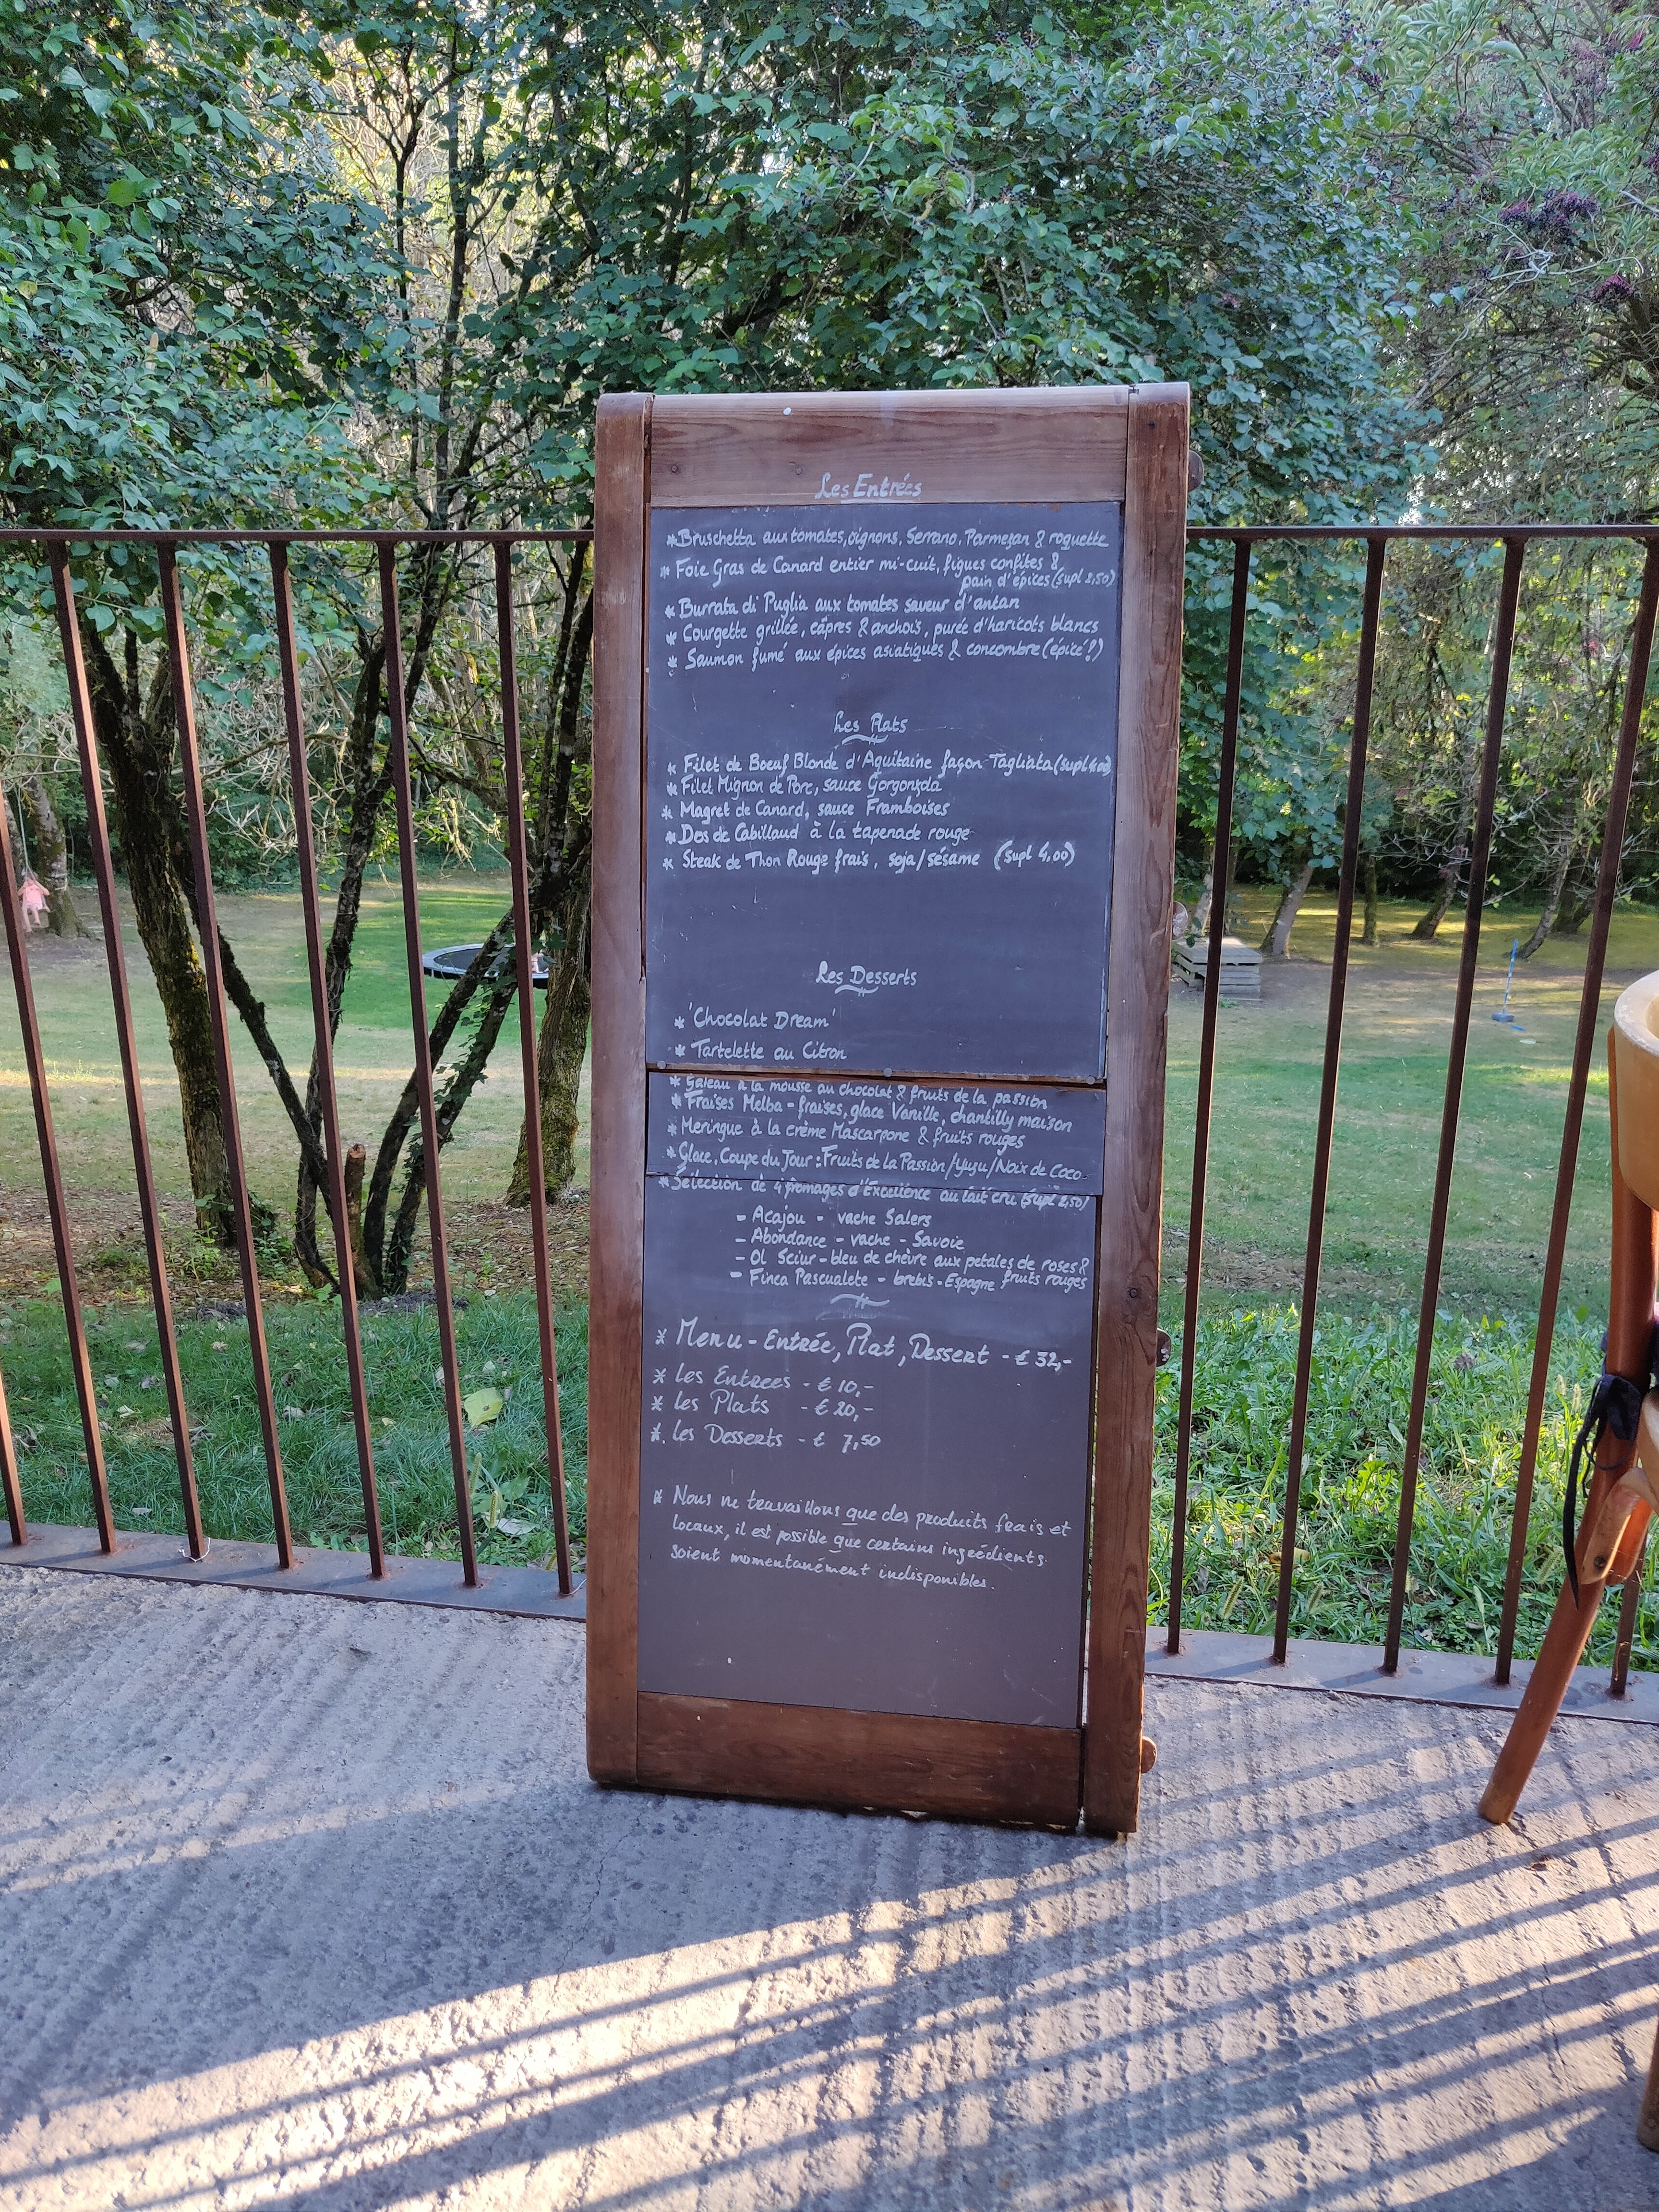 Les Entrées
* Bruschetta aux tomates, oignons, Serrano, Parmezan & roquette
* Foie Gras de Canard entier mi-cuit, figues confites &
pain d'épices (supl 2,50)
* Burrata di Puglia aux tomates saveur d'antan
* Courgette grillée, câpres & anchois, purée d'haricots blancs
* Saumon fumé aux épices asiatiques & concombre (épicé!)
Les Plats
* Filet de Boeuf Blonde d'Aquitaine façon Tagliata (supl 4,00)
* Filet Mignon de Porc, sauce Gorgonzola
* Magret de Canard, sauce Framboises
* Dos de Cabillaud à la tapenade rouge
* Steak de Thon Rouge frais, soja/sésame (supl 4,00)
Les Desserts
* 'Chocolat Dream'
* Tartelette au Citron
* Gateau à la mousse au chocolat & fruits de la passion
* Fraises Melba - fraises, glace Vanille, chantilly maison
* Meringue à la crème Mascarpone & fruits rouges
* Glace, Coupe du Jour : Fruits de la Passion/Yuzu/Noix de Coco
* Sélection de 4 fromages d'Excellence au lait cru (supl 2,50)
- Acajou - vache Salers
- Abondance - vache - Savoie
- Ol Sciur - bleu de chèvre aux petales de roses &
fruits rouges
- Finca Pascualete - brebis - Espagne
* Menu - Entrée, Plat, Dessert - € 32,-
* Les Entrees - € 10,-
* Les Plats - € 20,-
* Les Desserts - € 7,50
* Nous ne travaillons que des produits frais et
locaux, il est possible que certains ingrédients
soient momentanément indisponibles.